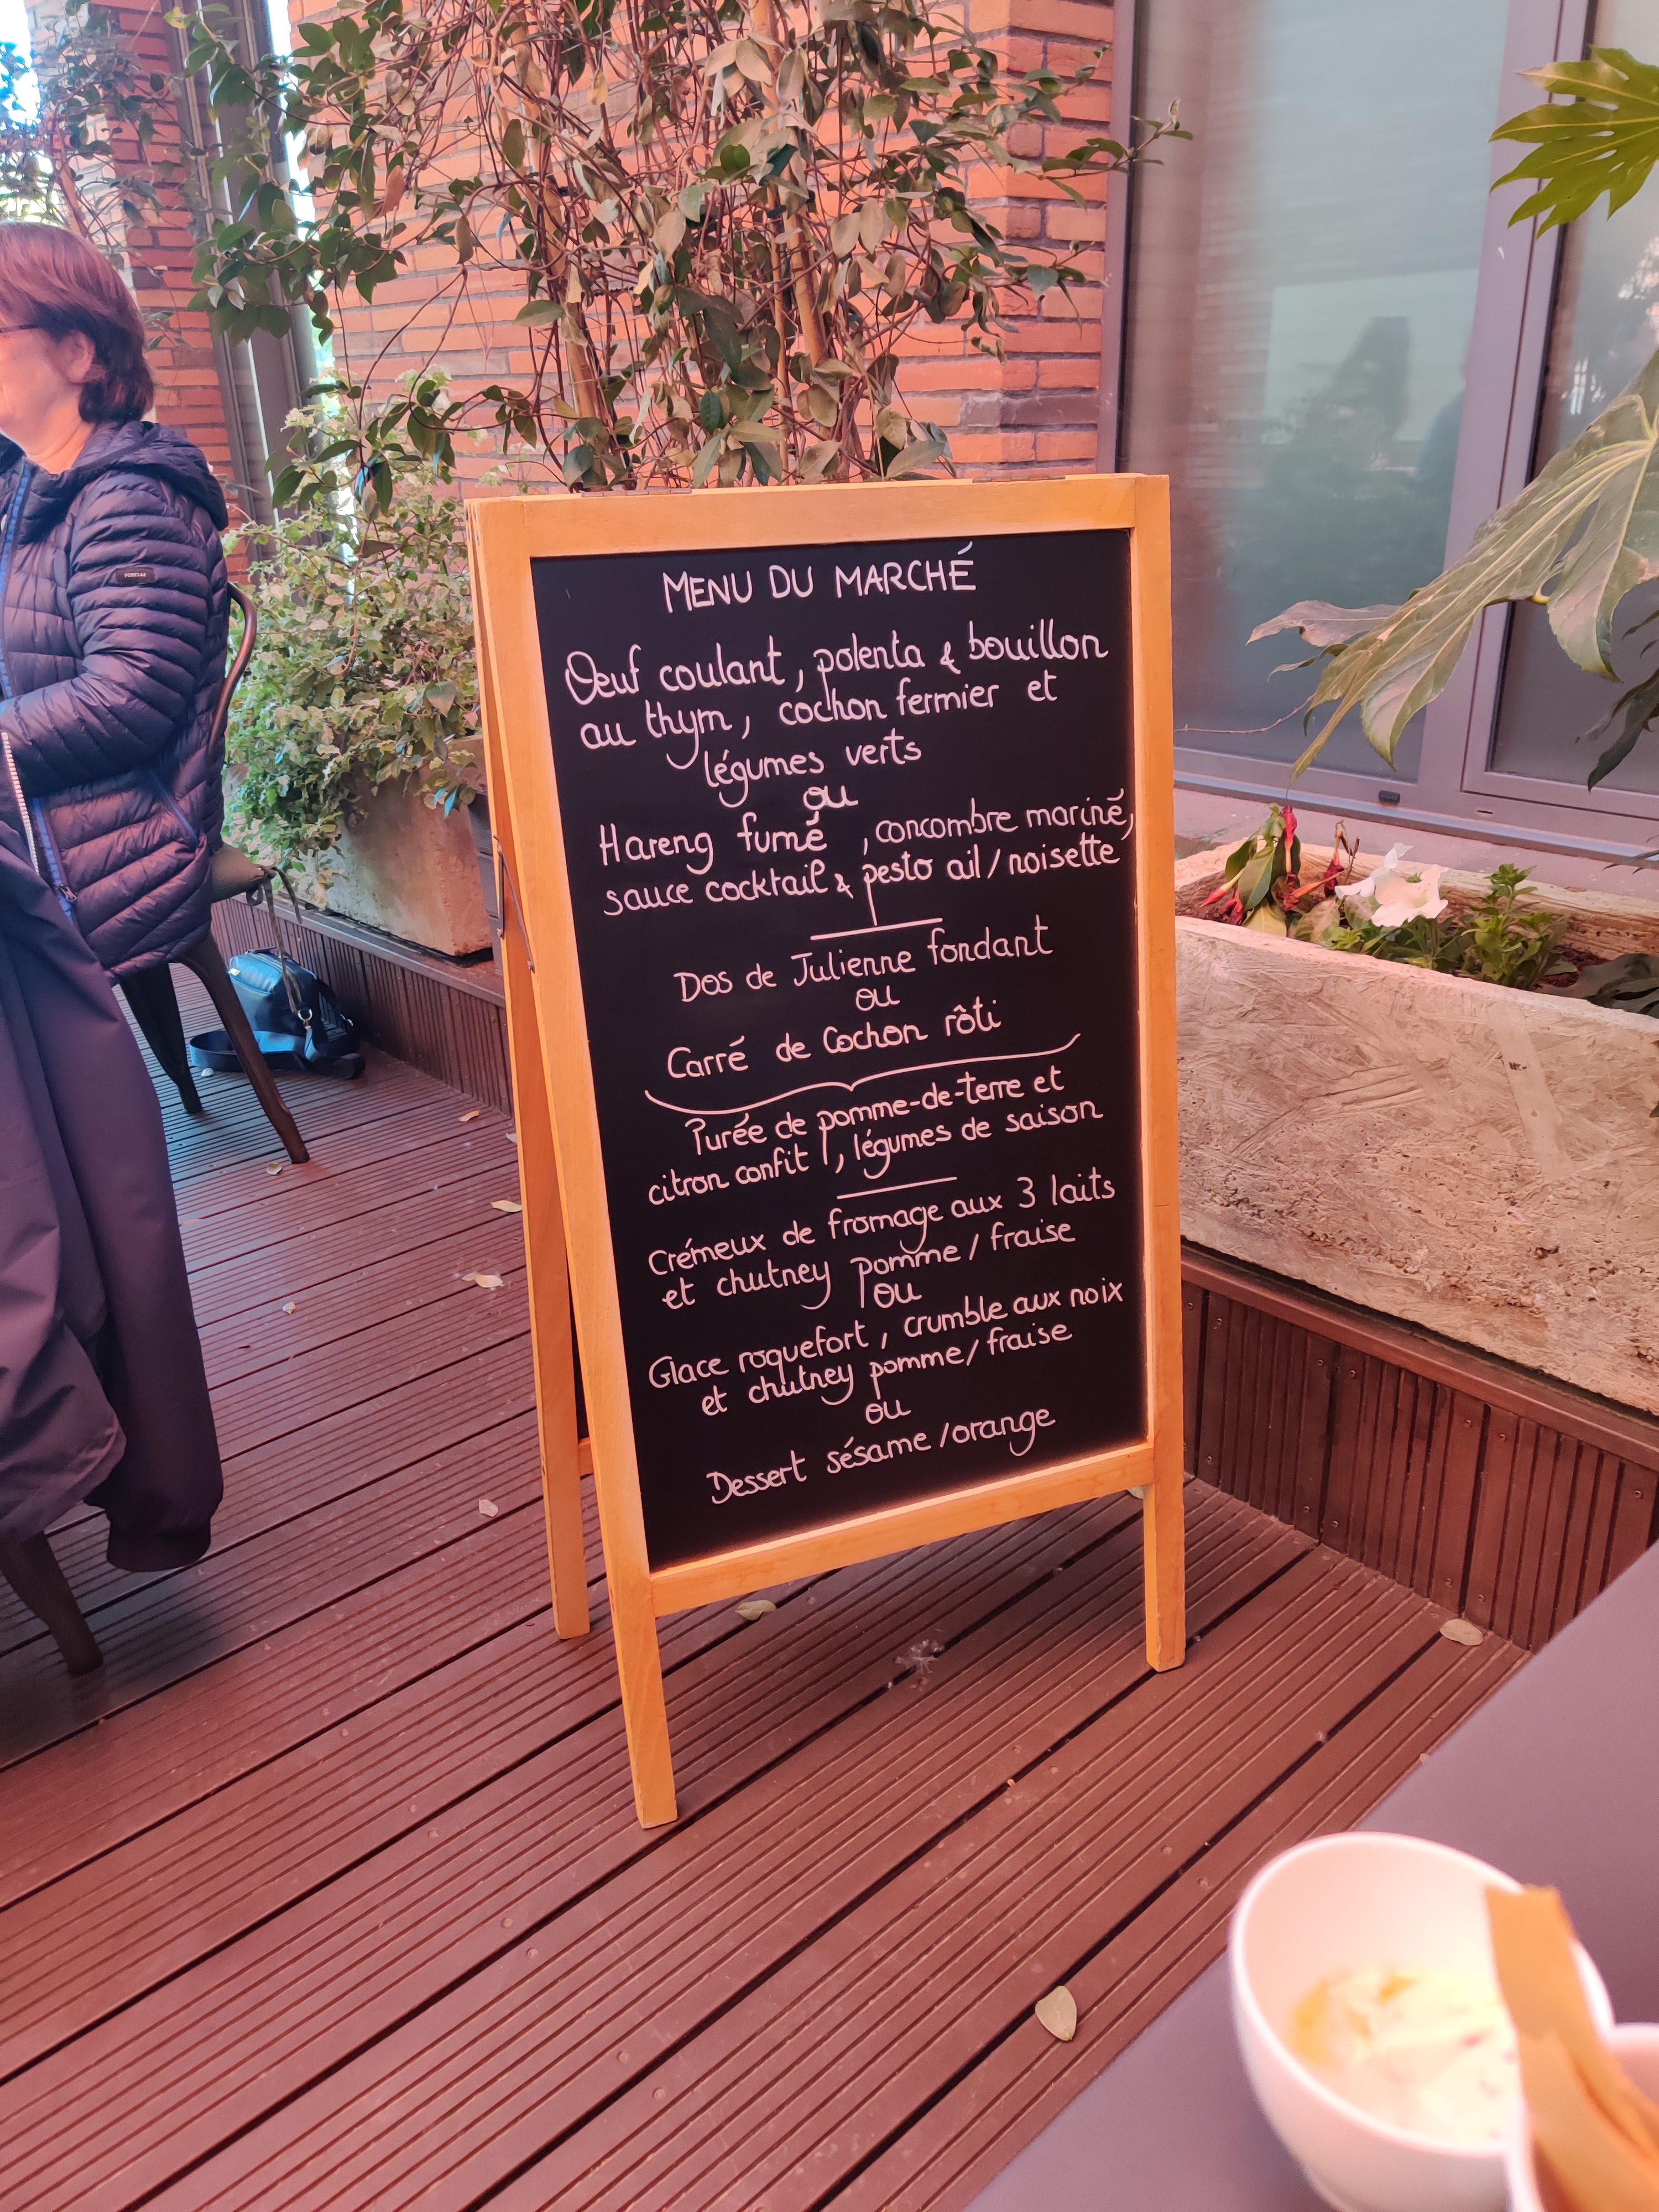 MENU DU MARCHÉ
Oeuf coulant, polenta & bouillon
au thym, cochon fermier et
légumes verts
ou
Hareng fumé , concombre mariné,
sauce cocktail & pesto ail / noisette
Dos de Julienne fondant
ou
Carré de Cochon rôti
Purée de pomme-de-terre et
citron confit, légumes de saison
Crémeux de fromage aux 3 laits
et chutney pomme / fraise
ou
Glace roquefort, crumble aux noix
et chutney pomme / fraise
ou
Dessert sésame / orange